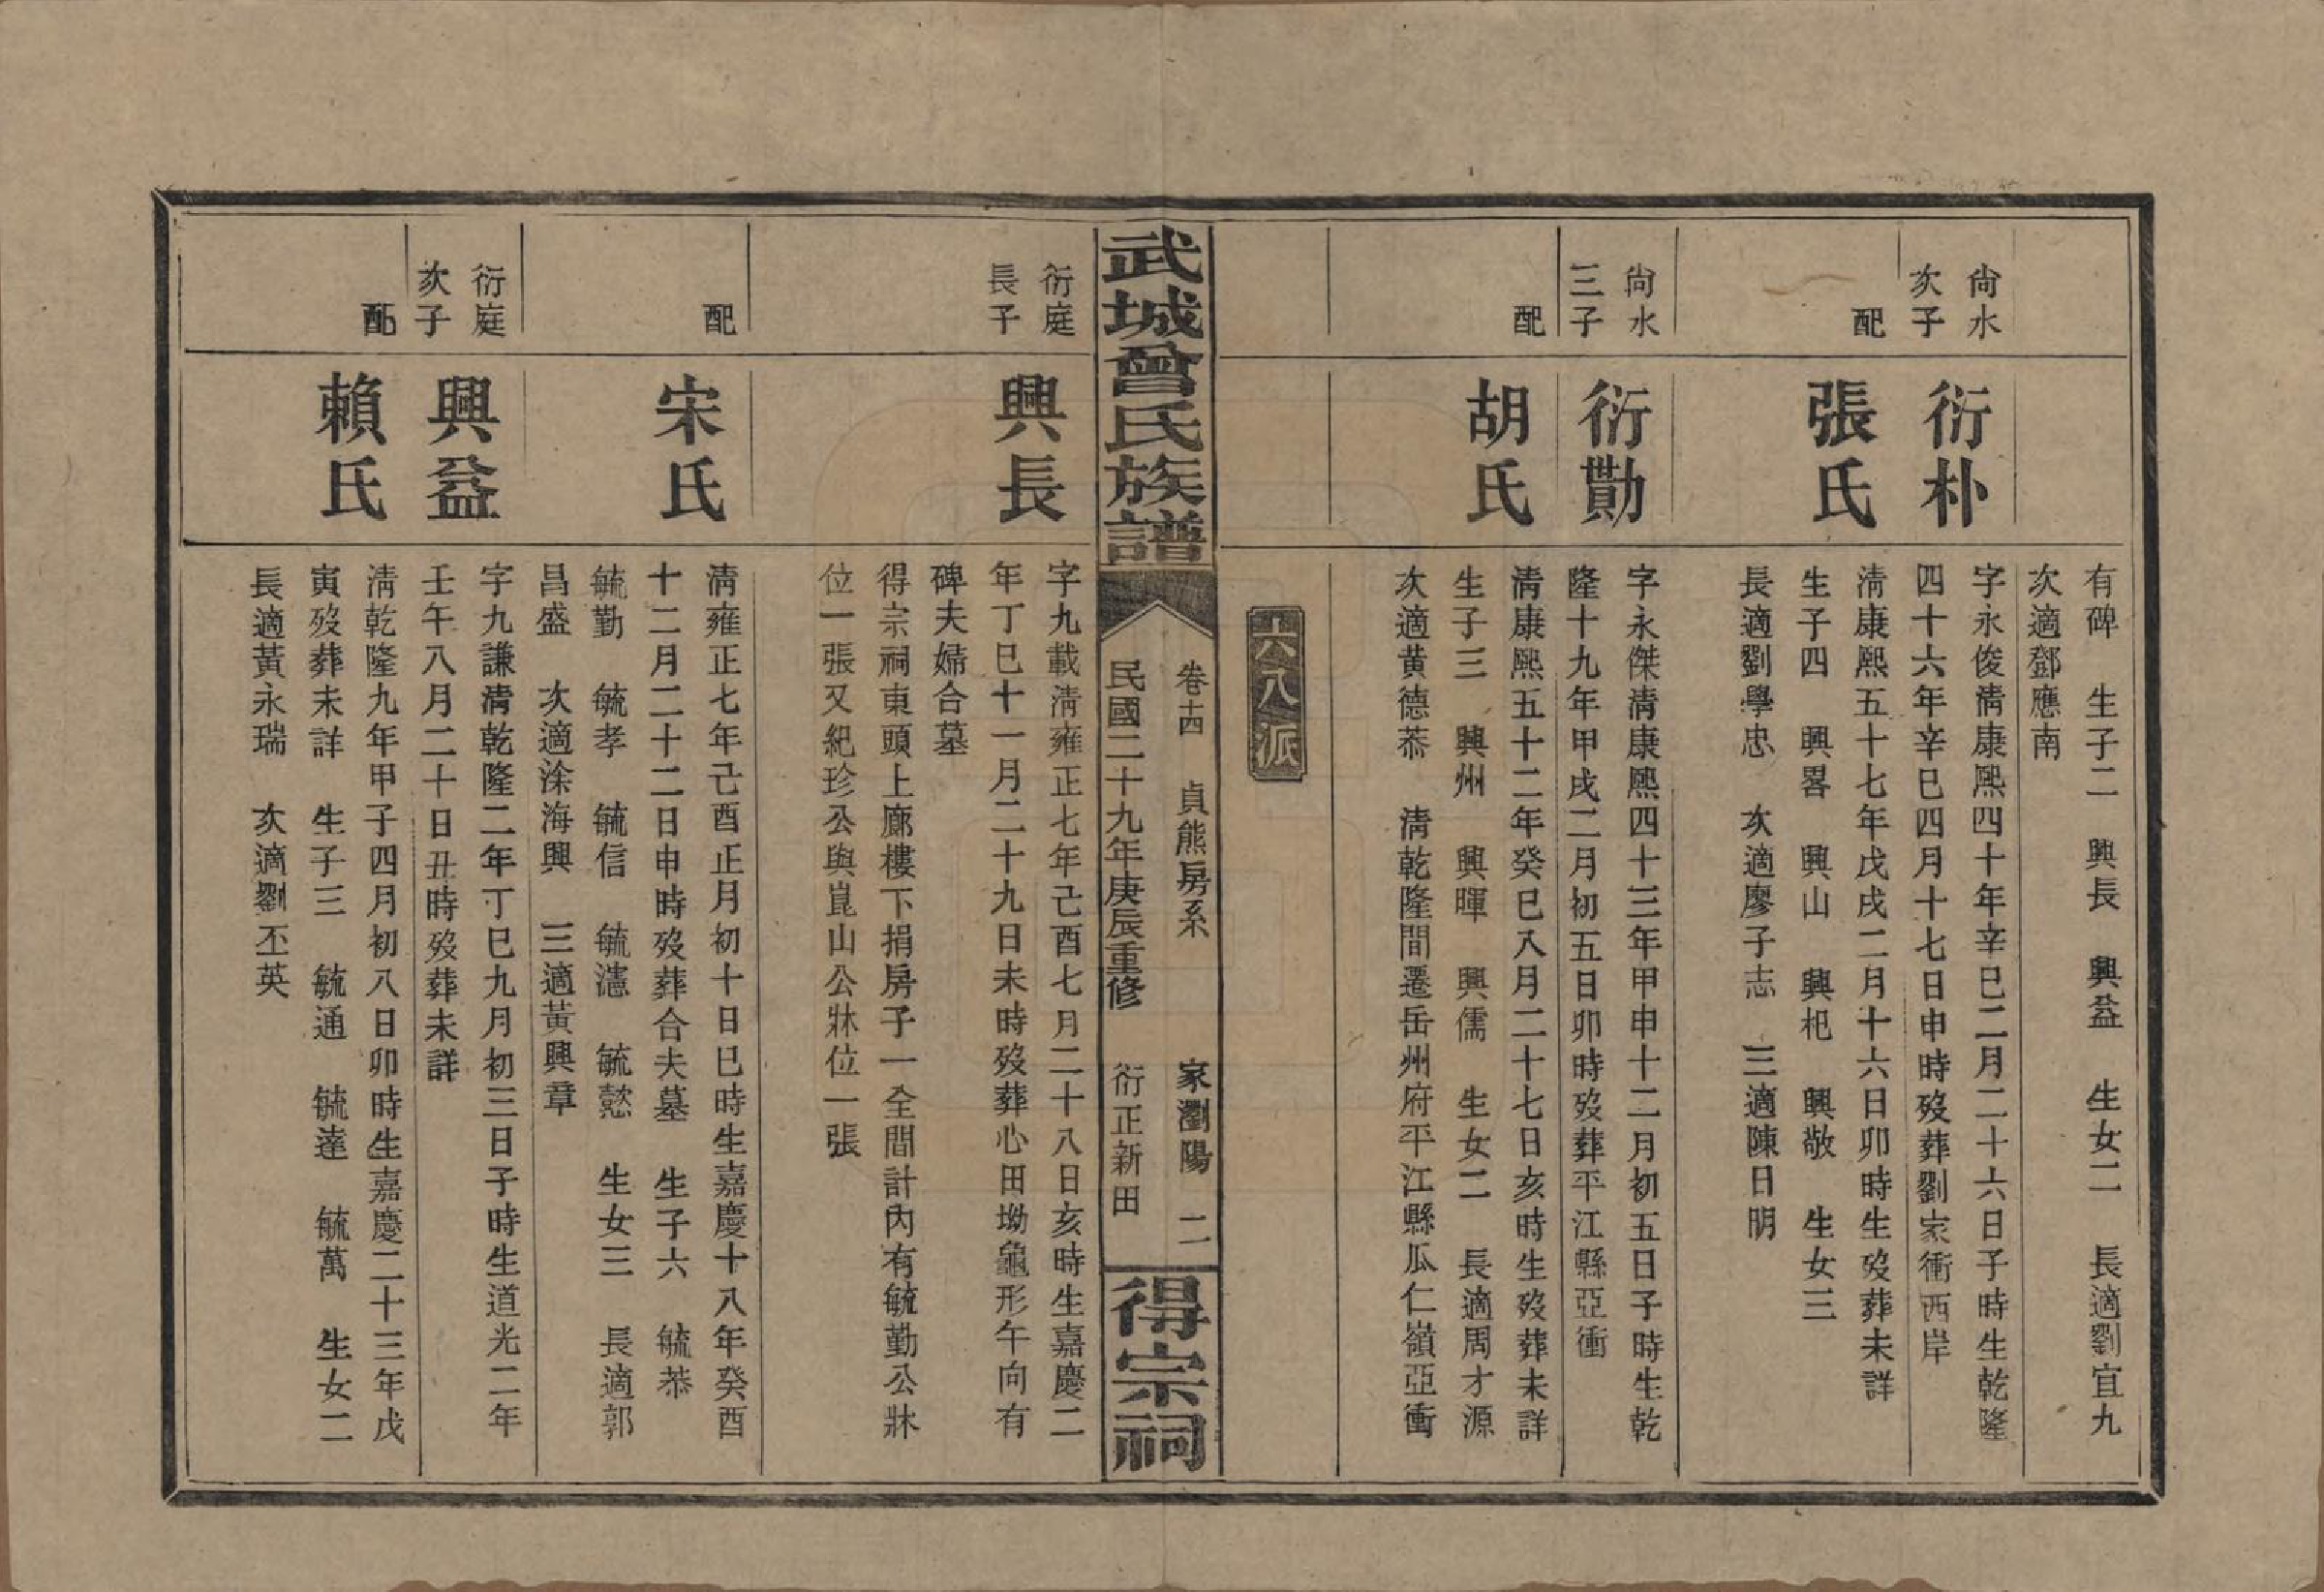 有碑　生子二　興長　興益　生女二　長適劉宜九
次適鄧應南
尙水
次子
衍朴
字永俊清康熙四十年辛巳二月二十六日子時生乾隆
四十六年辛巳四月十七日申時歿葬劉家衝西岸
配
張氏
清康熙五十七年戊戌二月十六日卯時生歿葬未詳
生子四　興畧　興山　興杞　興敬　生女三
長適劉學忠　次適廖子志　三適陳日明
尙水
三子
衍勳
字永傑清康熙四十三年甲申十二月初五日子時生乾
隆十九年甲戌二月初五日卯時歿葬平江縣亞衝
配
胡氏
清康熙五十二年癸巳八月二十七日亥時生歿葬未詳
生子三　興州　興暉　興儒　生女二　長適周才源
次適黃德恭　清乾隆間遷岳州府平江縣瓜仁嶺亞衝
六八派
武城曾氏族譜
卷十四　貞熊房系　家瀏陽　二
民國二十九年庚辰重修　衍正新田
得宗祠
衍庭
長子
興長
字九載清雍正七年己酉七月二十八日亥時生嘉慶二
年丁巳十一月二十九日未時歿葬心田坳龜形午向有
碑夫婦合墓
得宗祠東頭上廊樓下捐房子一全間計內有毓勤公牀
位一張又紀珍公與崑山公牀位一張
配
宋氏
清雍正七年己酉正月初十日巳時生嘉慶十八年癸酉
十二月二十二日申時歿葬合夫墓　生子六　毓恭
毓勤　毓孝　毓信　毓濾　毓懿　生女三　長適郭
昌盛　次適涂海興　三適黃興章
衍庭
次子
興益
字九謙清乾隆二年丁巳九月初三日子時生道光二年
壬午八月二十日丑時歿葬未詳
配
賴氏
清乾隆九年甲子四月初八日卯時生嘉慶二十三年戊
寅歿葬未詳　生子三　毓通　毓達　毓萬　生女二
長適黃永瑞　次適劉丕英